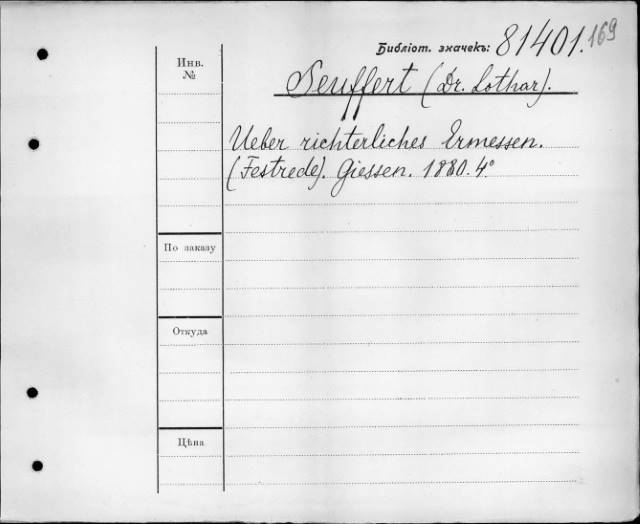 Библіот. значекъ: 81401. 169
Инв.
№
Seuffert (Dr. Lothar).
Ueber richterliches Ermessen.
(Festrede). Giessen. 1880. 4°
По заказу
Откуда
Цѣна